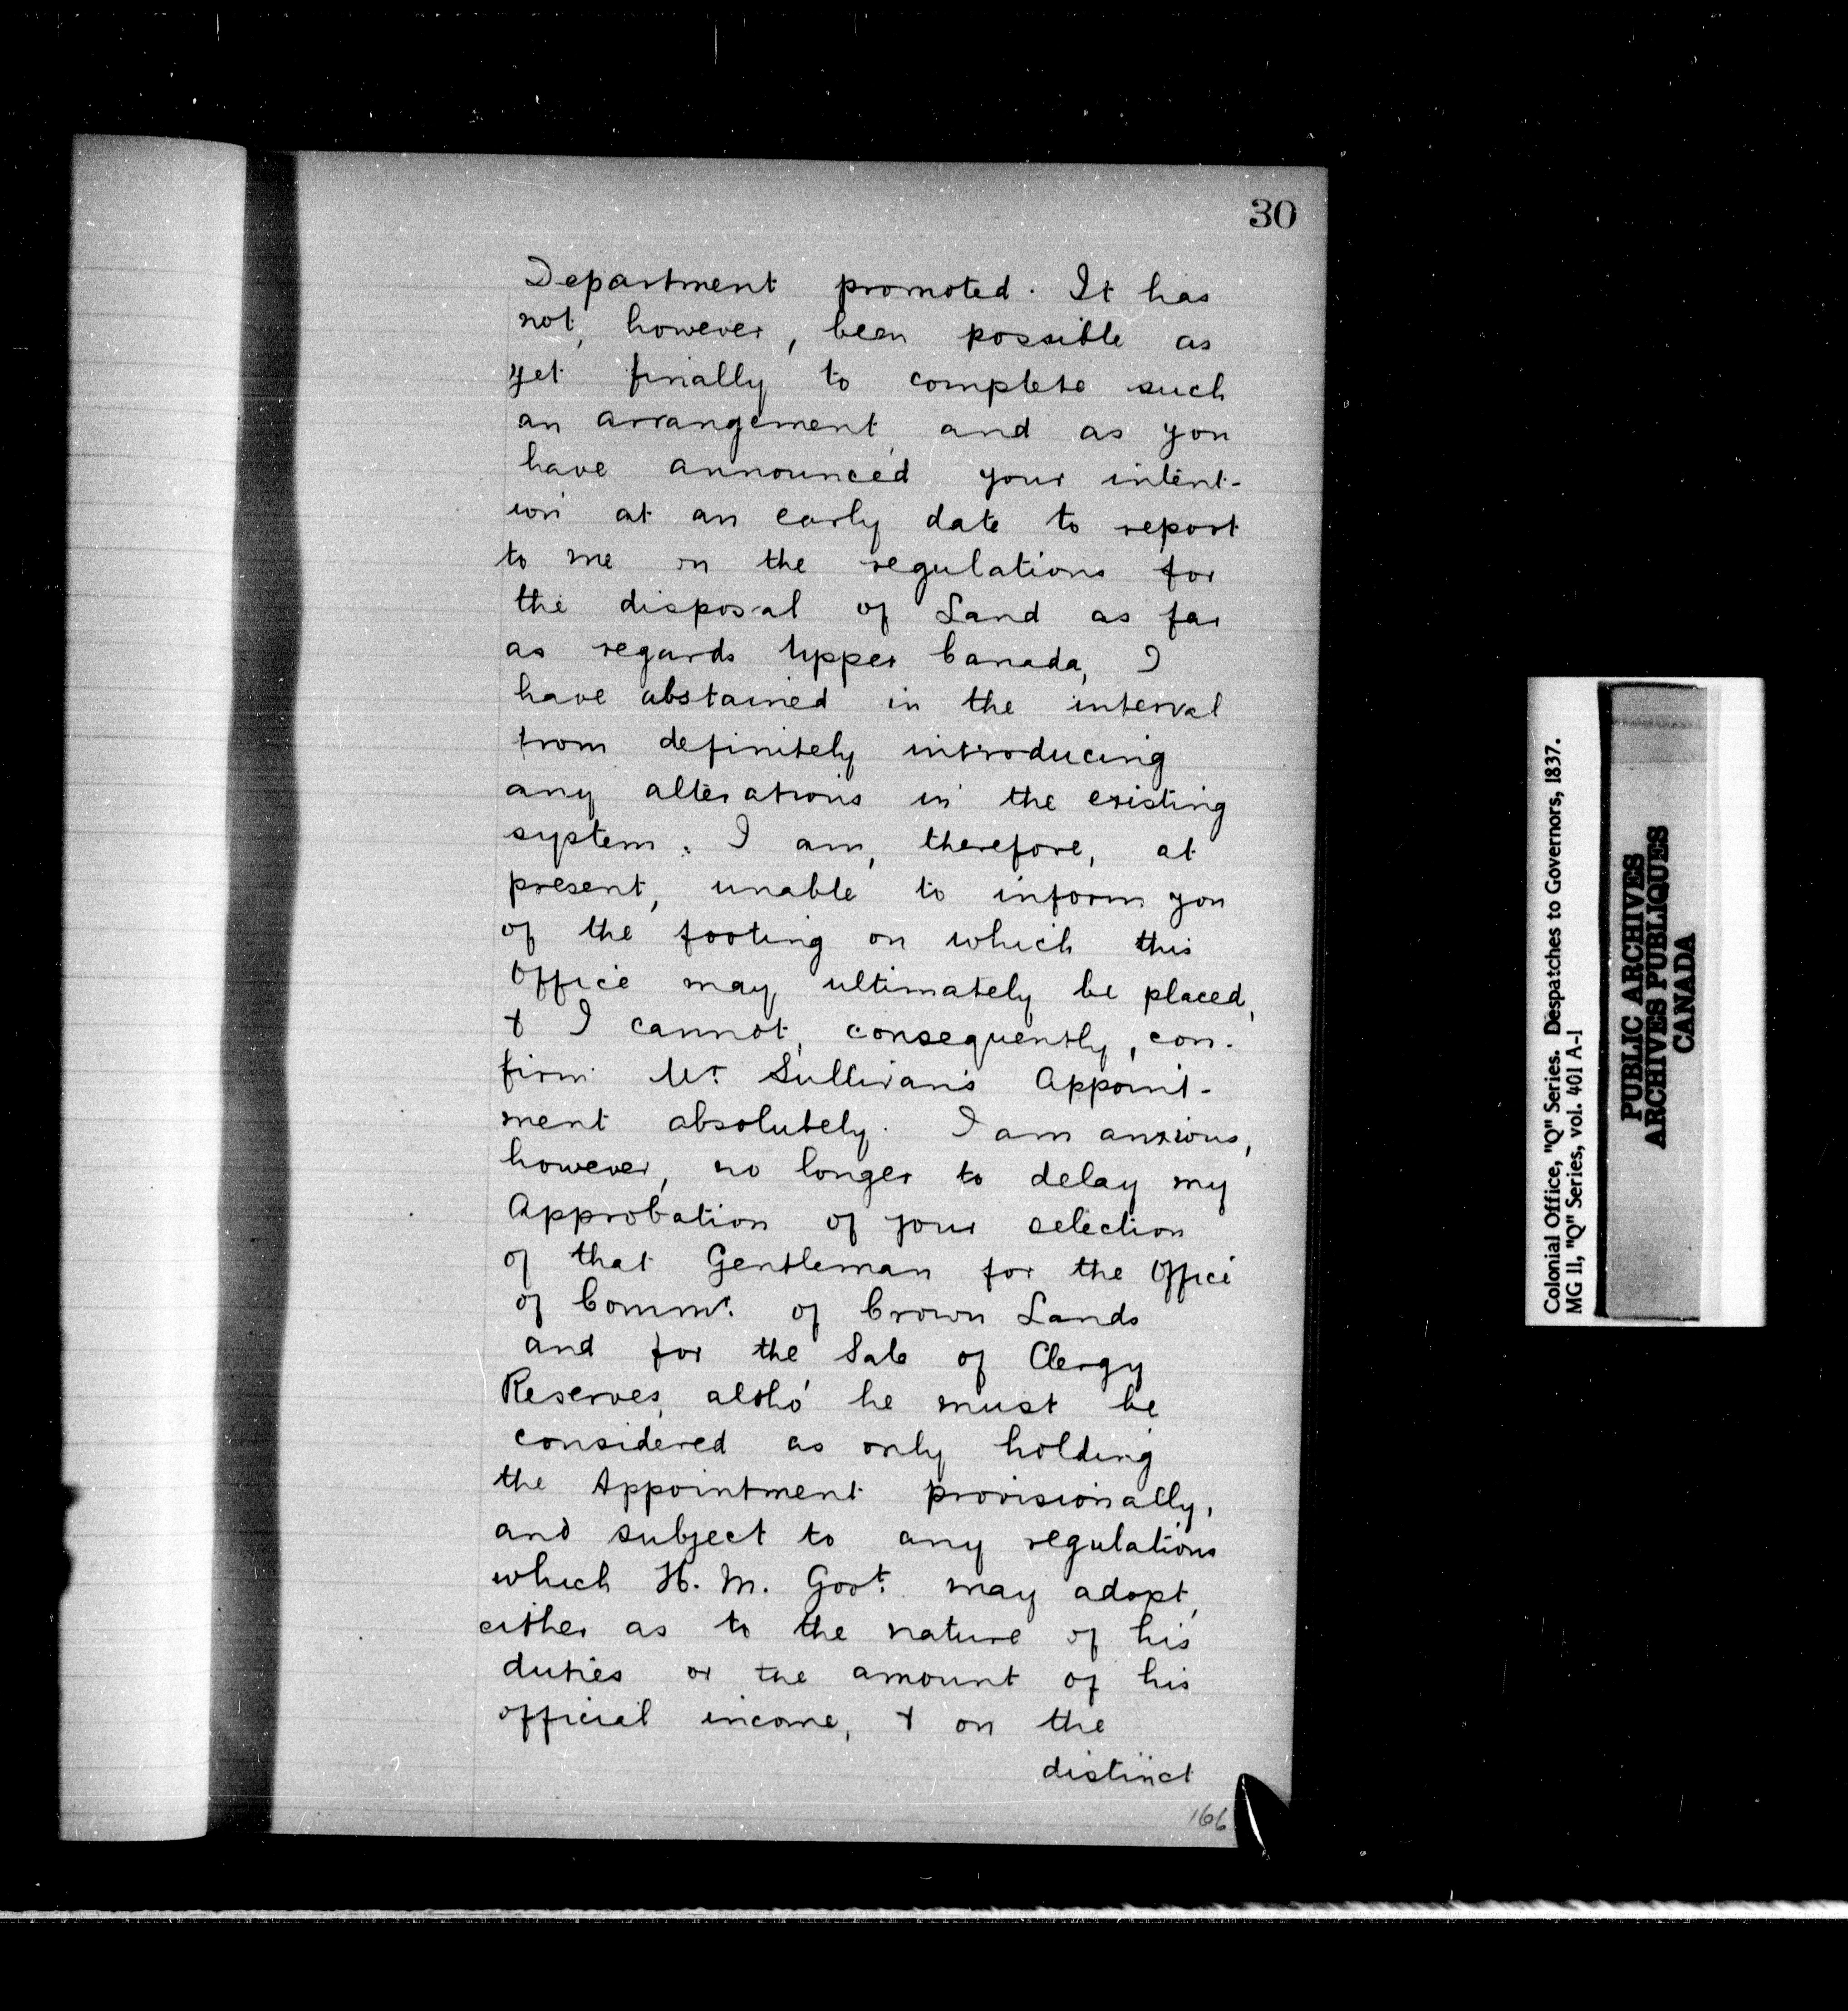 30
Department promoted. It has
not, however, been possible as
yet finally to complete such
an arrangement, and as you
have announced your intent-
ion at an early date to report
to me on the regulations for
the disposal of Land as far
as regards Upper Canada, I
have abstained in the interval
from definitely introducing
any alterations in the existing
system. I am, therefore, at
present, unable to inform you
of the footing on which this
Office may ultimately be placed,
& I cannot, consequently, con-
firm Mr. Sullivan's Appoint-
ment absolutely. I am anxious,
however, no longer to delay my
Approbation of your selection
of that Gentleman for the Office
of Commr. of Crown Lands
and for the Sale of Clergy
Reserves, altho' he must be
considered as only holding
the Appointment provisionally,
and subject to any regulations
which H. M. Govt. may adopt,
either as to the nature of his
duties or the amount of his
official income, & on the
distinct
166
Colonial Office, "Q" Series. Despatches to Governors, 1837.
MG 11, "Q" Series, vol. 401 A-1
PUBLIC ARCHIVES
ARCHIVES PUBLIQUES
CANADA